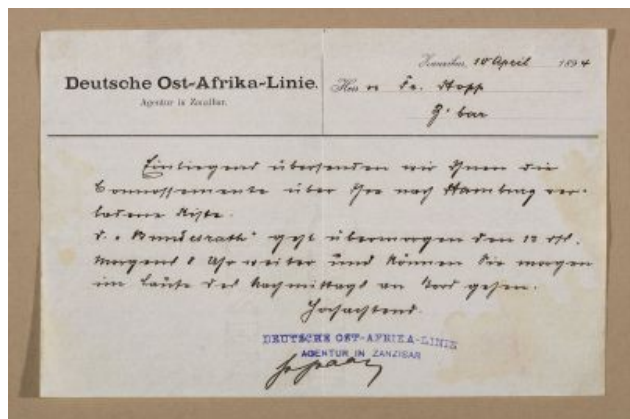 Deutsche Ost-Afrika-Linie.
Agentur in Zanzibar.
Zanzibar, 10 April 1894
Herrn Fr. Stopp
Z'bar
Einliegend übersenden wir Ihnen die
Connossemente über Ihre nach Hamburg ver-
ladene Kiste.
D. "Bundesrath" geht übermorgen den 12 dss.
Morgens 8 Uhr weiter und können Sie morgen
im Laufe des Nachmittags an Bord gehen.
Hochachtend.
DEUTSCHE OST-AFRIKA-LINIE
AGENTUR IN ZANZIBAR